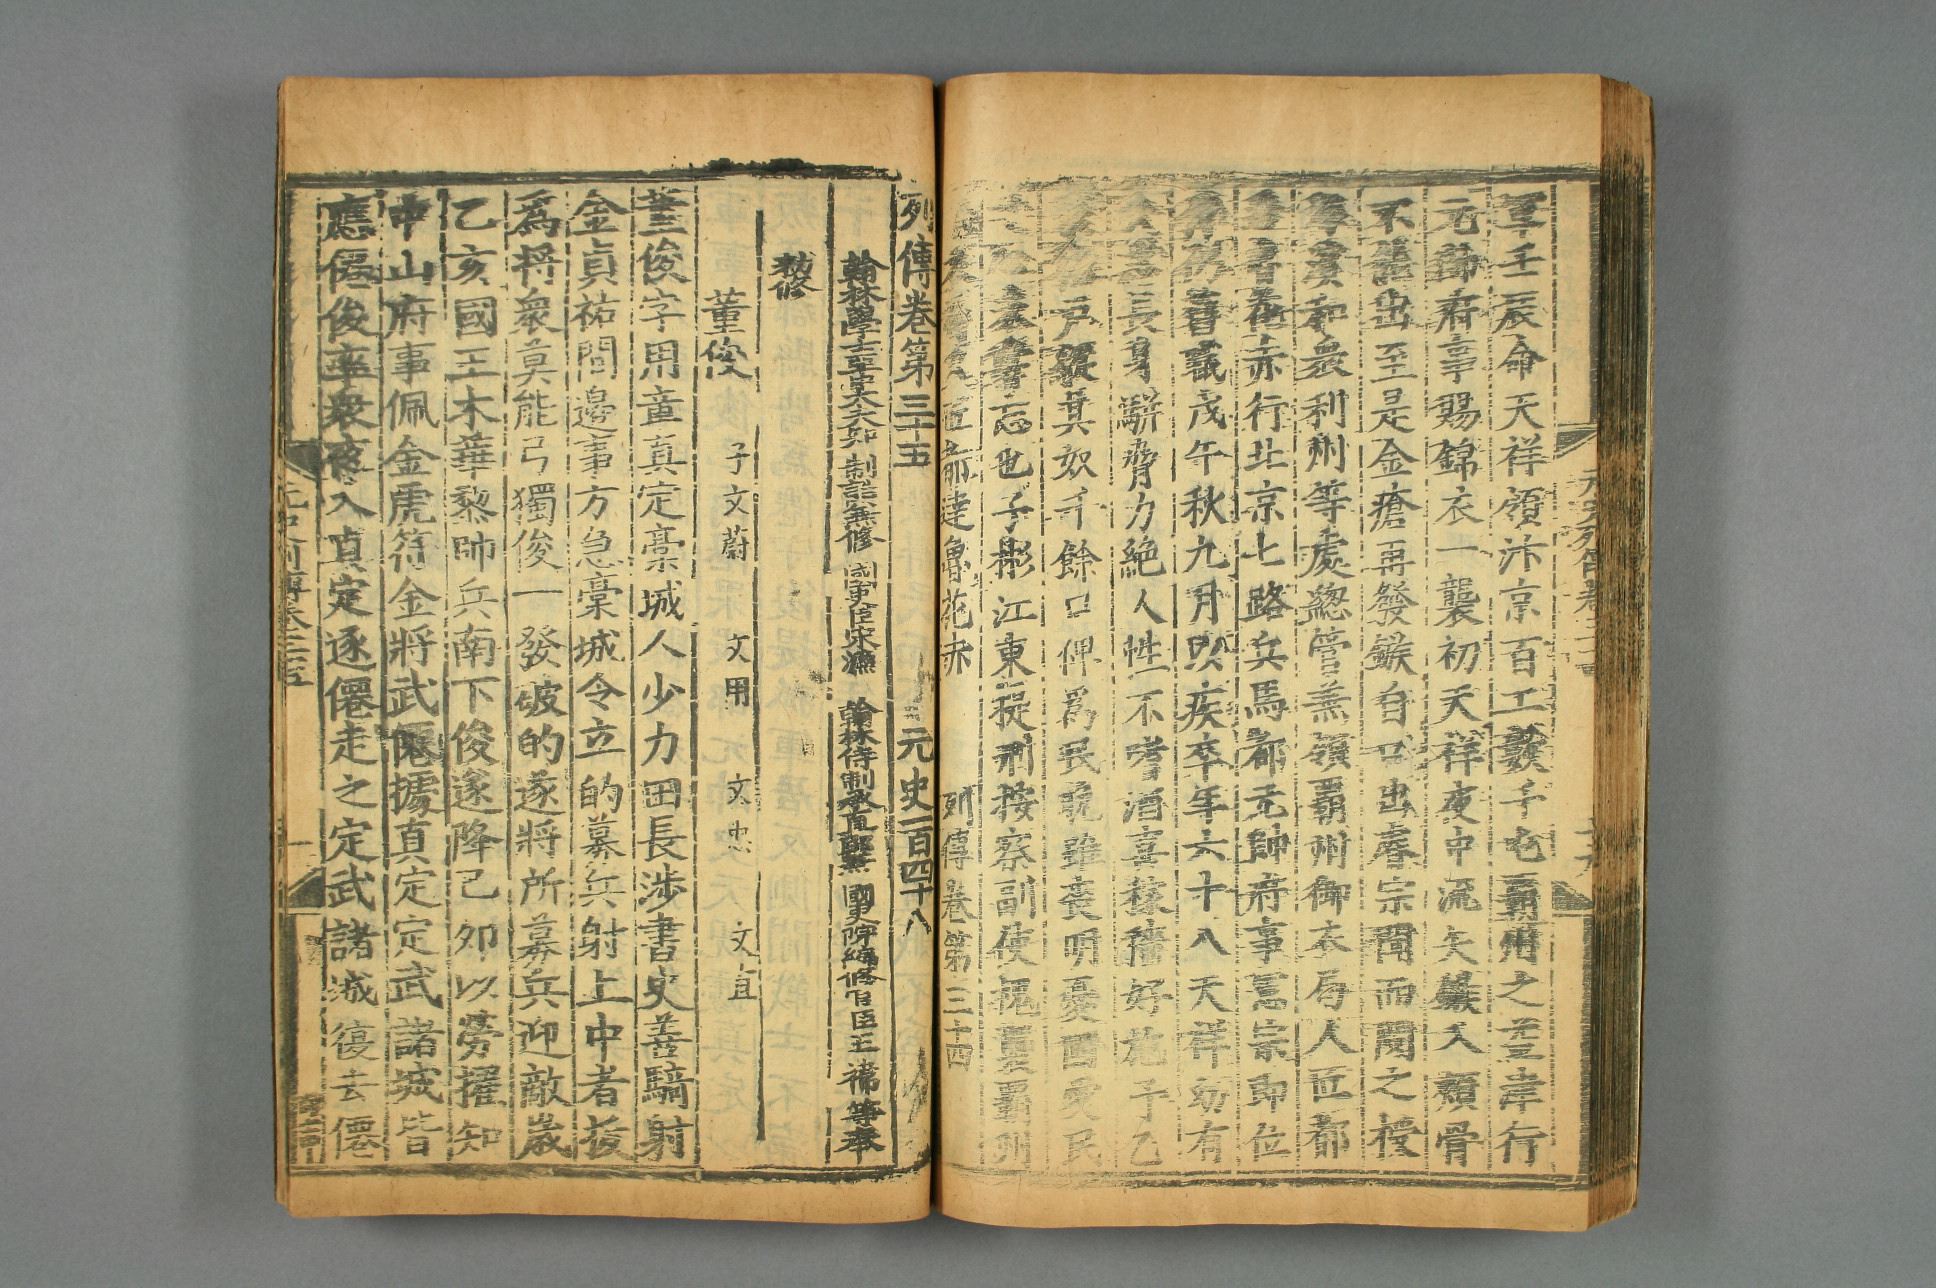 軍壬辰命天祥領汴京百工數千屯霸州之益津行
元帥府事賜錦衣一襲初天祥夜中流矢鏃入頰骨
不能出至是金瘡再發鏃自口出睿宗聞而閔之授
利州等處總管兼領霸州御衣局人匠都
赤行北京七路兵馬都元帥府事憲宗即位
戊午秋九月以疾卒年六十八天祥幼有
長身駢脅力絕人性不嗜酒喜稼穡好施予乙
戶籍其奴千餘口俾爲民晚雖喪明憂國愛民
忘也子彬江東提刑按察副使槐襲霸州
達魯花赤
列傳卷第三十四
元史列傳卷三十四
列傳卷第三十五 元史一百四十八
翰林學士亞中大夫知制誥兼修國史臣宋濂 翰林待制承直郎兼國史院編修官臣王禕等奉
敕修
董俊 子文蔚 文用 文忠 文直
董俊字用章真定藁城人少力田長涉書史善騎射
金貞祐間邊事方急藁城令立的募兵射上中者拔
爲將衆莫能弓獨俊一發破的遂將所募兵迎敵歲
乙亥國王木華黎帥兵南下俊遂降己卯以勞擢知
中山府事佩金虎符金將武僊據真定定武諸城皆
應僊俊率衆夜入真定逐僊走之定武諸城復去僊
元史列傳卷三十五
一